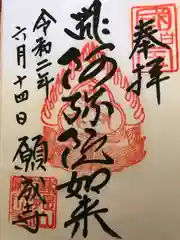 奉拝
阿弥陀如来
令和二年
六月十四日
願成寺